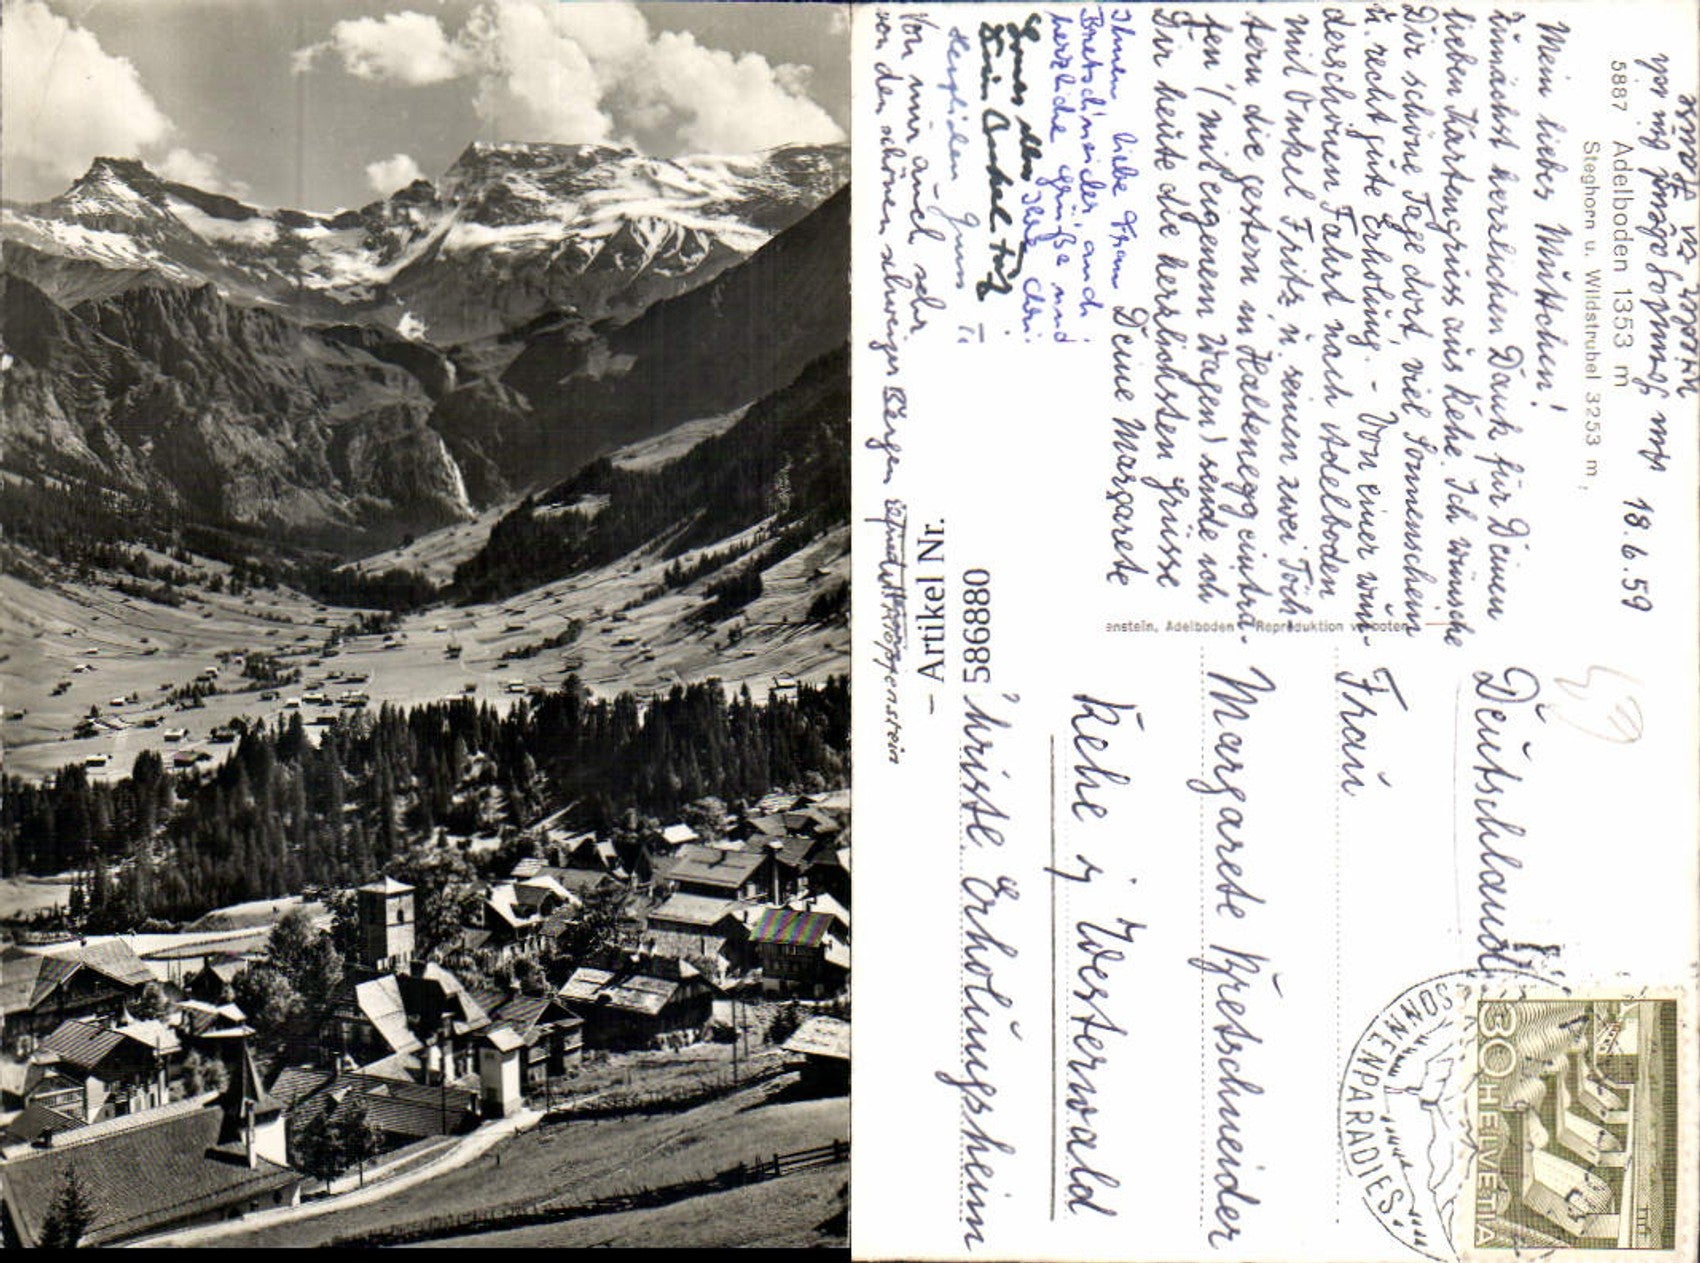 5887 Adelboden 1353 m
Steghorn u. Wildstrubel 3253 m,
18.6.59
Mein liebes Müttchen!
Zunächst herzlichen Dank für Deinen
lieben Kartengruss aus Rehe. Ich wünsche
Dir schöne Tage dort, viel Sonnenschein
u. recht gute Erholung. - Von einer wun-
derschönen Fahrt nach Adelboden
mit Onkel Fritz u. seinen zwei Töch-
tern die gestern in Haltenegg eintra-
fen (mit eigenem Wagen) sende ich
Dir heute die herzlichsten Grüsse
Deine Margarete
Ihnen, liebe Frau
Bretschneider, auch
herzliche Grüße und
alles Ihre
Dein Onkel Fritz
Herzlichen Gruss
Von mir auch sehr
von den schönen schweizer Bergen
enstein, Adelboden Reproduktion verboten
Klopfenstein
– Artikel Nr.
5868880
Deutschland
Frau
Margarete Bretschneider
Rehe i/ Westerwald
Christl. Erholungsheim
SONNENPARADIES
30
HELVETIA